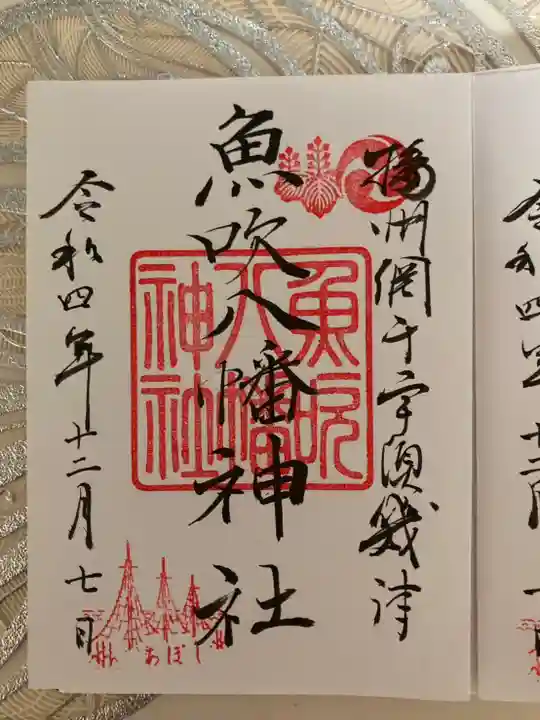 播州網干宇須幾津
魚吹八幡神社
令和四年十二月七日
魚吹
八幡
神社
あぼし
令和四年十二月